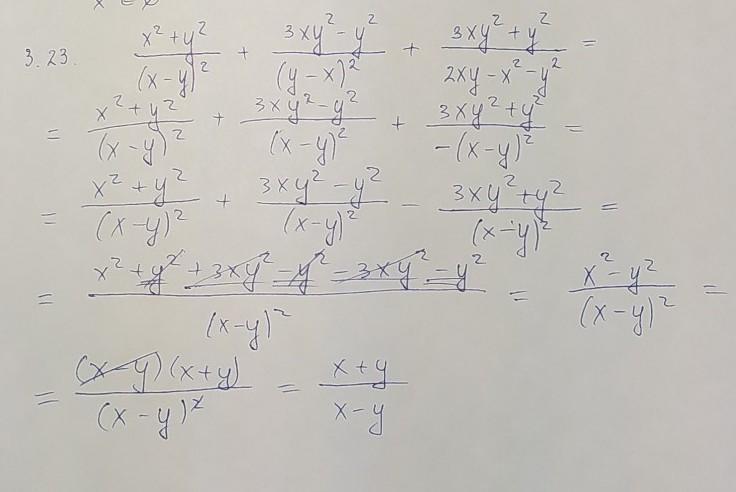 x ∈ ∅
3.23. (x² + y²)/(x - y)² + (3xy² - y²)/(y - x)² + (3xy² + y²)/(2xy - x² - y²) =
= (x² + y²)/(x - y)² + (3xy² - y²)/(x - y)² + (3xy² + y²)/(-(x - y)²) =
= (x² + y²)/(x - y)² + (3xy² - y²)/(x - y)² - (3xy² + y²)/(x - y)² =
= (x² + y² + 3xy² - y² - 3xy² - y²)/(x - y)² = (x² - y²)/(x - y)² =
= ((x - y)(x + y))/(x - y)² = (x + y)/(x - y)